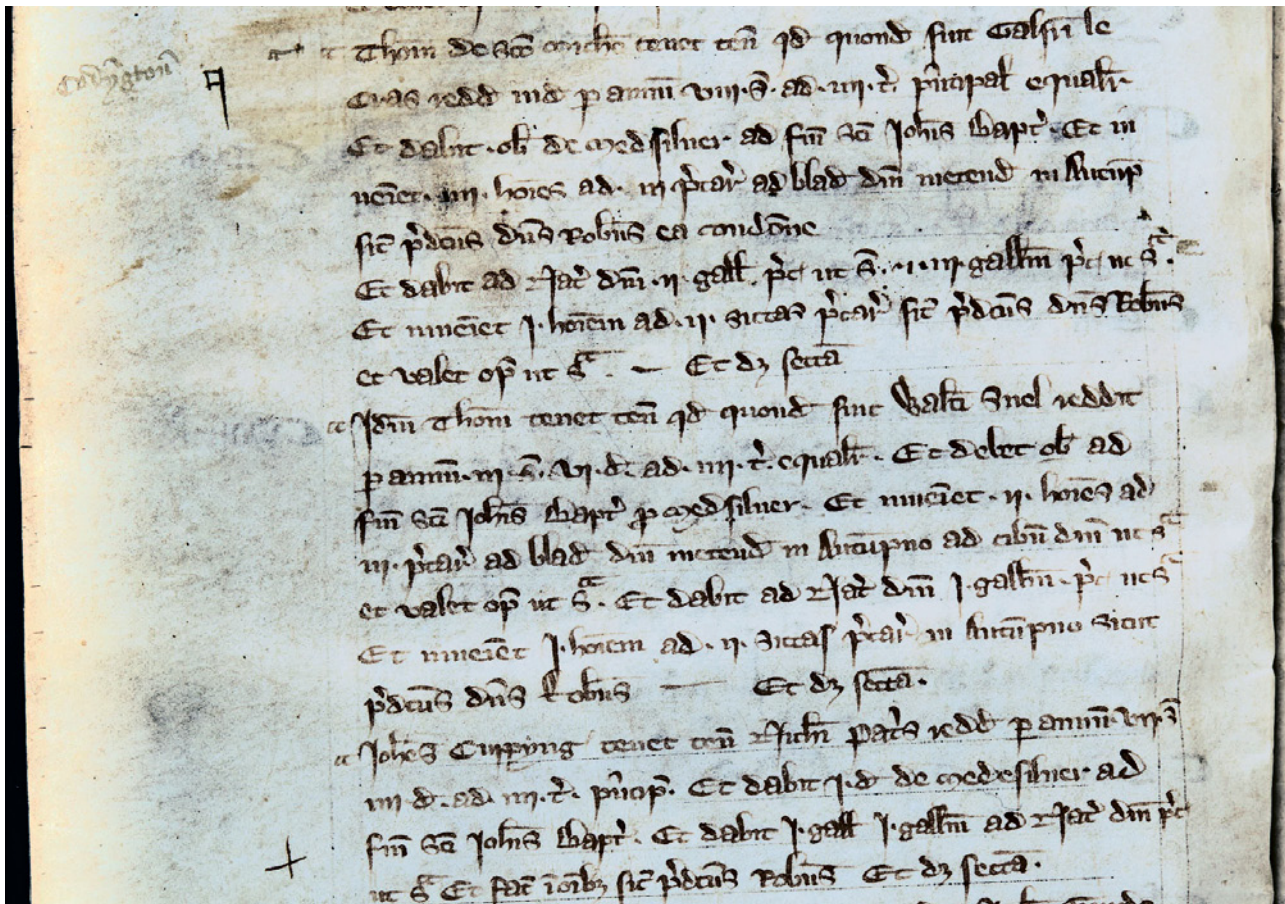 Codyngton
Thom̄ de Sc̄o Mich̄e tenet ten̄ qd quond fuit Galfri le
Cras redd ind p annm̄ viii.s̄. ad .iiii. t̄. p̄ncipal equalr̄.
Et dabit .ob de Medsilver ad fm̄ Sc̄i Joh̄is Bapt̄. Et in
ueīet .iiii. hoīes ad .iii p̄car̄ ad blad dn̄i metend in Autūp
sic̄ p̄dc̄us dn̄s Rob̄us ea condōne
Et dabit ad Nat̄ dn̄i .ii. gall. p̄c ut s̄. .iii. gallin̄ p̄c ut s̄.
Et inueīet j. hoīem ad .ii. siccas p̄car̄ sic̄ p̄dc̄us dn̄s Rob̄us
et valet op̄ ut s̄. — Et dȝ sectā
Idm̄ Thom̄ tenet ten̄ qd quond fuit Walt̄i Snel reddit
p annm̄ .iii. s̄. vi. d. ad .iiii. t̄. equalr̄. Et debet ob ad
fm̄ Sc̄i Joh̄is Bapt̄ p Medsilver. Et inueīet .ii. hoīes ad
iii. p̄car̄ ad blad dn̄i metend in Autūpno ad cibū dn̄i ut s̄
et valet op̄ ut s̄. Et dabit ad Nat̄ dn̄i j. gallin̄. p̄c ut s̄
Et inueīet j. hoīem ad .ii. siccas p̄car̄ in Autūpno sicut
p̄dc̄us dn̄s Rob̄us — Et dȝ sectā.
Joh̄es Cupping tenet ten̄ Nich̄i redd p annm̄ vii. s̄
iiii d. ad .iiii. t̄. p̄ncip̄. Et dabit j. d de Medesilver ad
fm̄ Sc̄i Joh̄is Bapt̄. Et dabit j. gall j. gallin̄ ad Nat̄ dn̄i p̄c
ut s̄ Et fac̄ ī oībȝ sic̄ p̄dc̄us Rob̄us Et dȝ sectā.